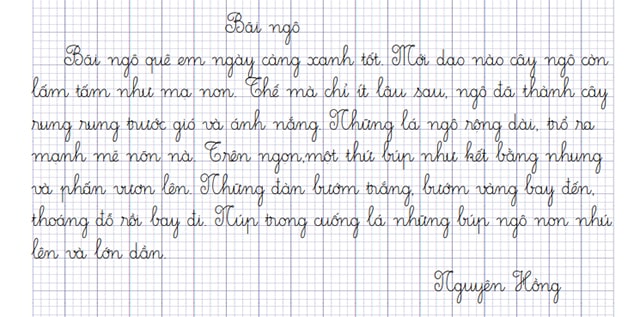 Bãi ngô
Bãi ngô quê em ngày càng xanh tốt. Mới dạo nào cây ngô còn
lấm tấm như mạ non. Thế mà chỉ ít lâu sau, ngô đã thành cây
rung rung trước gió và ánh nắng. Những lá ngô rộng dài, trổ ra
mạnh mẽ nõn nà. Trên ngọn,một thứ búp như kết bằng nhung
và phấn vươn lên. Những đàn bướm trắng, bướm vàng bay đến,
thoáng đỗ rồi bay đi. Núp trong cuống lá những búp ngô non nhú
lên và lớn dần.
Nguyên Hồng